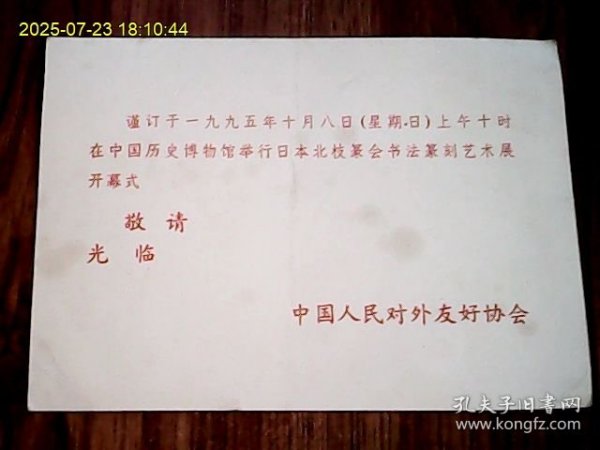 2025-07-23 18:10:44
谨订于一九九五年十月八日(星期日)上午十时
在中国历史博物馆举行日本北枝篆会书法篆刻艺术展
开幕式
敬请
光临
中国人民对外友好协会
孔夫子旧书网
www.kongfz.com